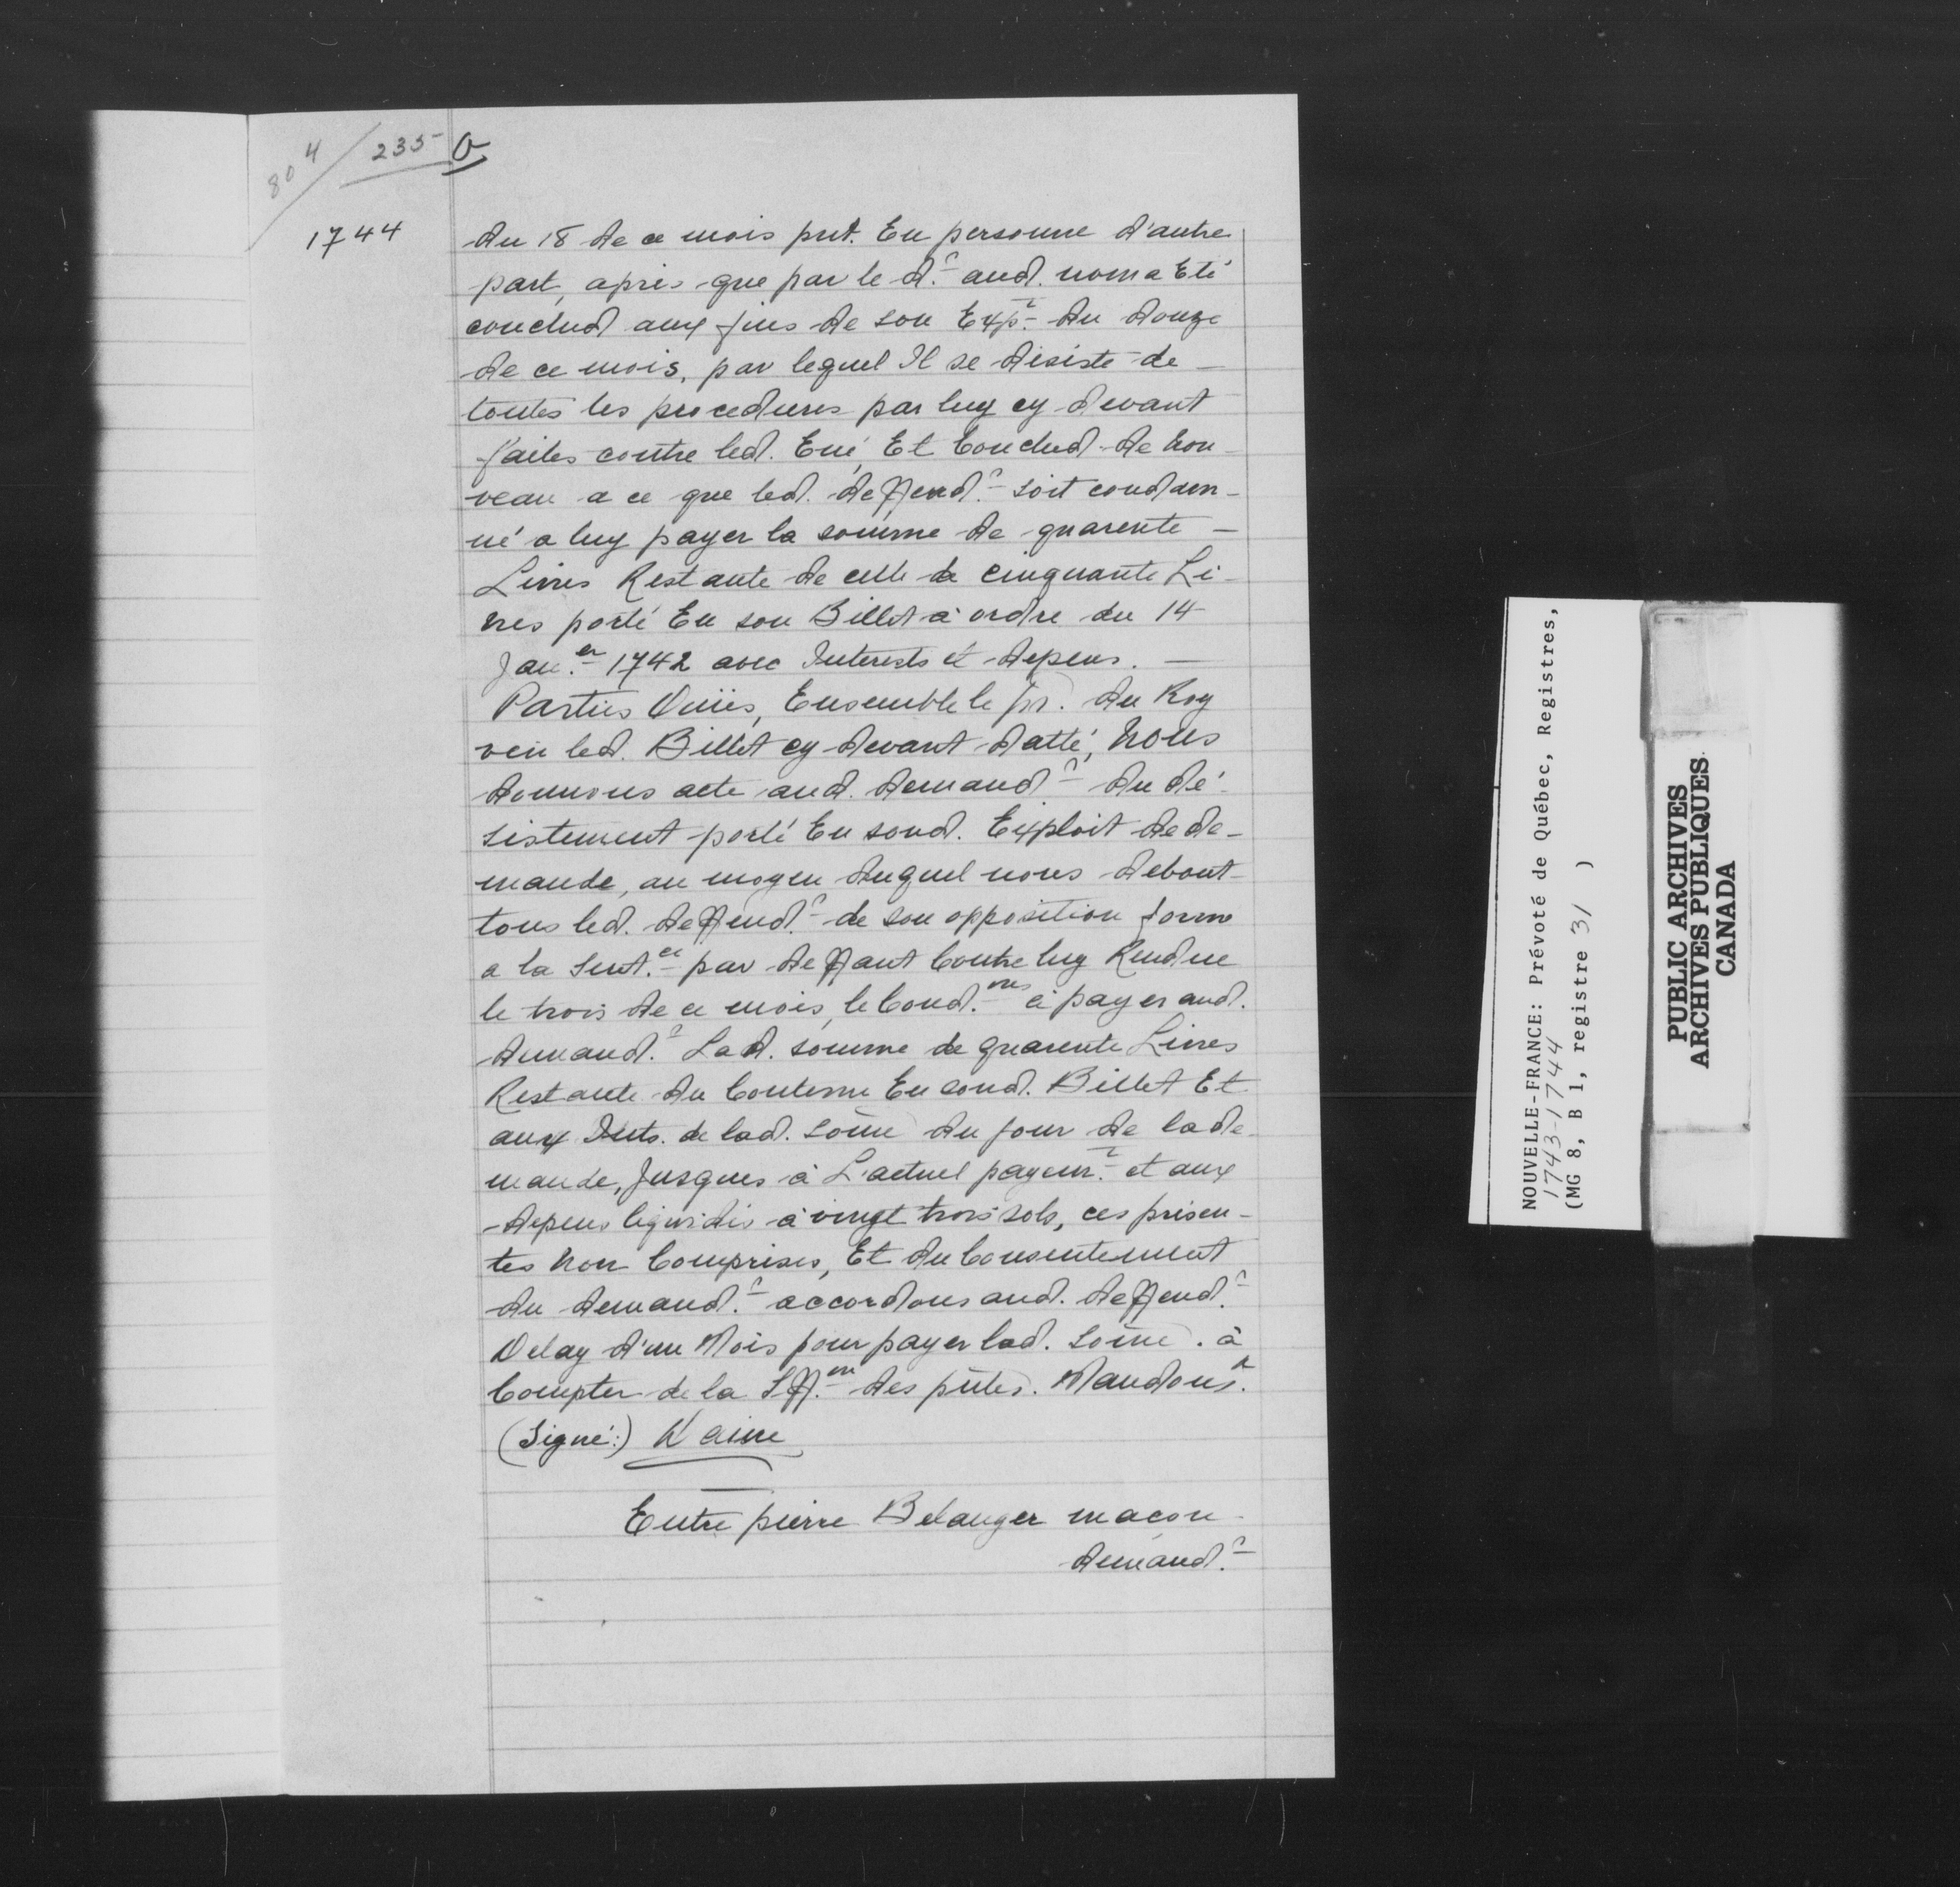 804 / 235
1744
du 18 de ce mois prt. En personne d'autre
part, apres que par le d.r aud. nom a Eté
conclud aux fins de son Exp.t du douze
de ce mois, par lequel Il se désiste de
toutes les procedures par luy cy devant
faites contre led. Eué, Et Conclud de nou-
veau a ce que led. deffend.r soit condam-
né a luy payer la somme de quarente
Livres Restante de celle de Cinquante Li-
vres porté En son Billet à ordre du 14
Jan.er 1742 avec Interests et depens.
Parties Ouïes, Ensemble le pr. du Roy
veu led. Billet cy devant datté, nous
donnons acte aud. demand.r du dé-
sistement porté En sond. Exploit de de-
mande, au moyen duquel nous debout-
tons led. deffend.r de son opposition formé
a la Sent.ce par deffaut Contre luy Rendue
le trois de ce mois, le Cond.ons à payer aud.
demand.r Lad. somme de quarente Livres
Restante du Contenu En sond. Billet Et
aux Ints. de lad. some du jour de la de-
mande, Jusques à L'actuel payem.t et aux
depens liquidés à vingt trois sols, ces présen-
tes non Comprises, Et du Consentement
du demand.r accordons aud. deffend.r
Delay d'un Mois pour payer lad. some. à
Compter de la Sff.on des pntes. Mandons.&
(Signé:) Daine
Entre pierre Belanger macon
demand.r
NOUVELLE-FRANCE: Prévoté de Québec, Registres,
1743-1744
(MG 8, B 1, registre 31 )
PUBLIC ARCHIVES
ARCHIVES PUBLIQUES
CANADA